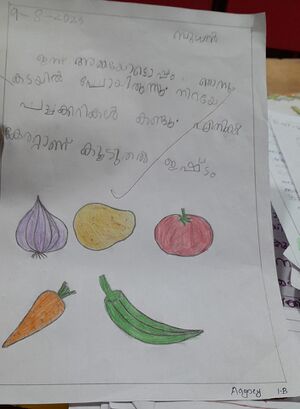 9-8-2023
ഇന്ന് അമ്മയോടൊപ്പം ഞാനും
കടയിൽ പോയിരുന്നു. നിറയേ
പച്ചക്കറികൾ കണ്ടു. എനിക്ക്
കാരറ്റാണ് കൂടുതൽ ഇഷ്ടം
1-B